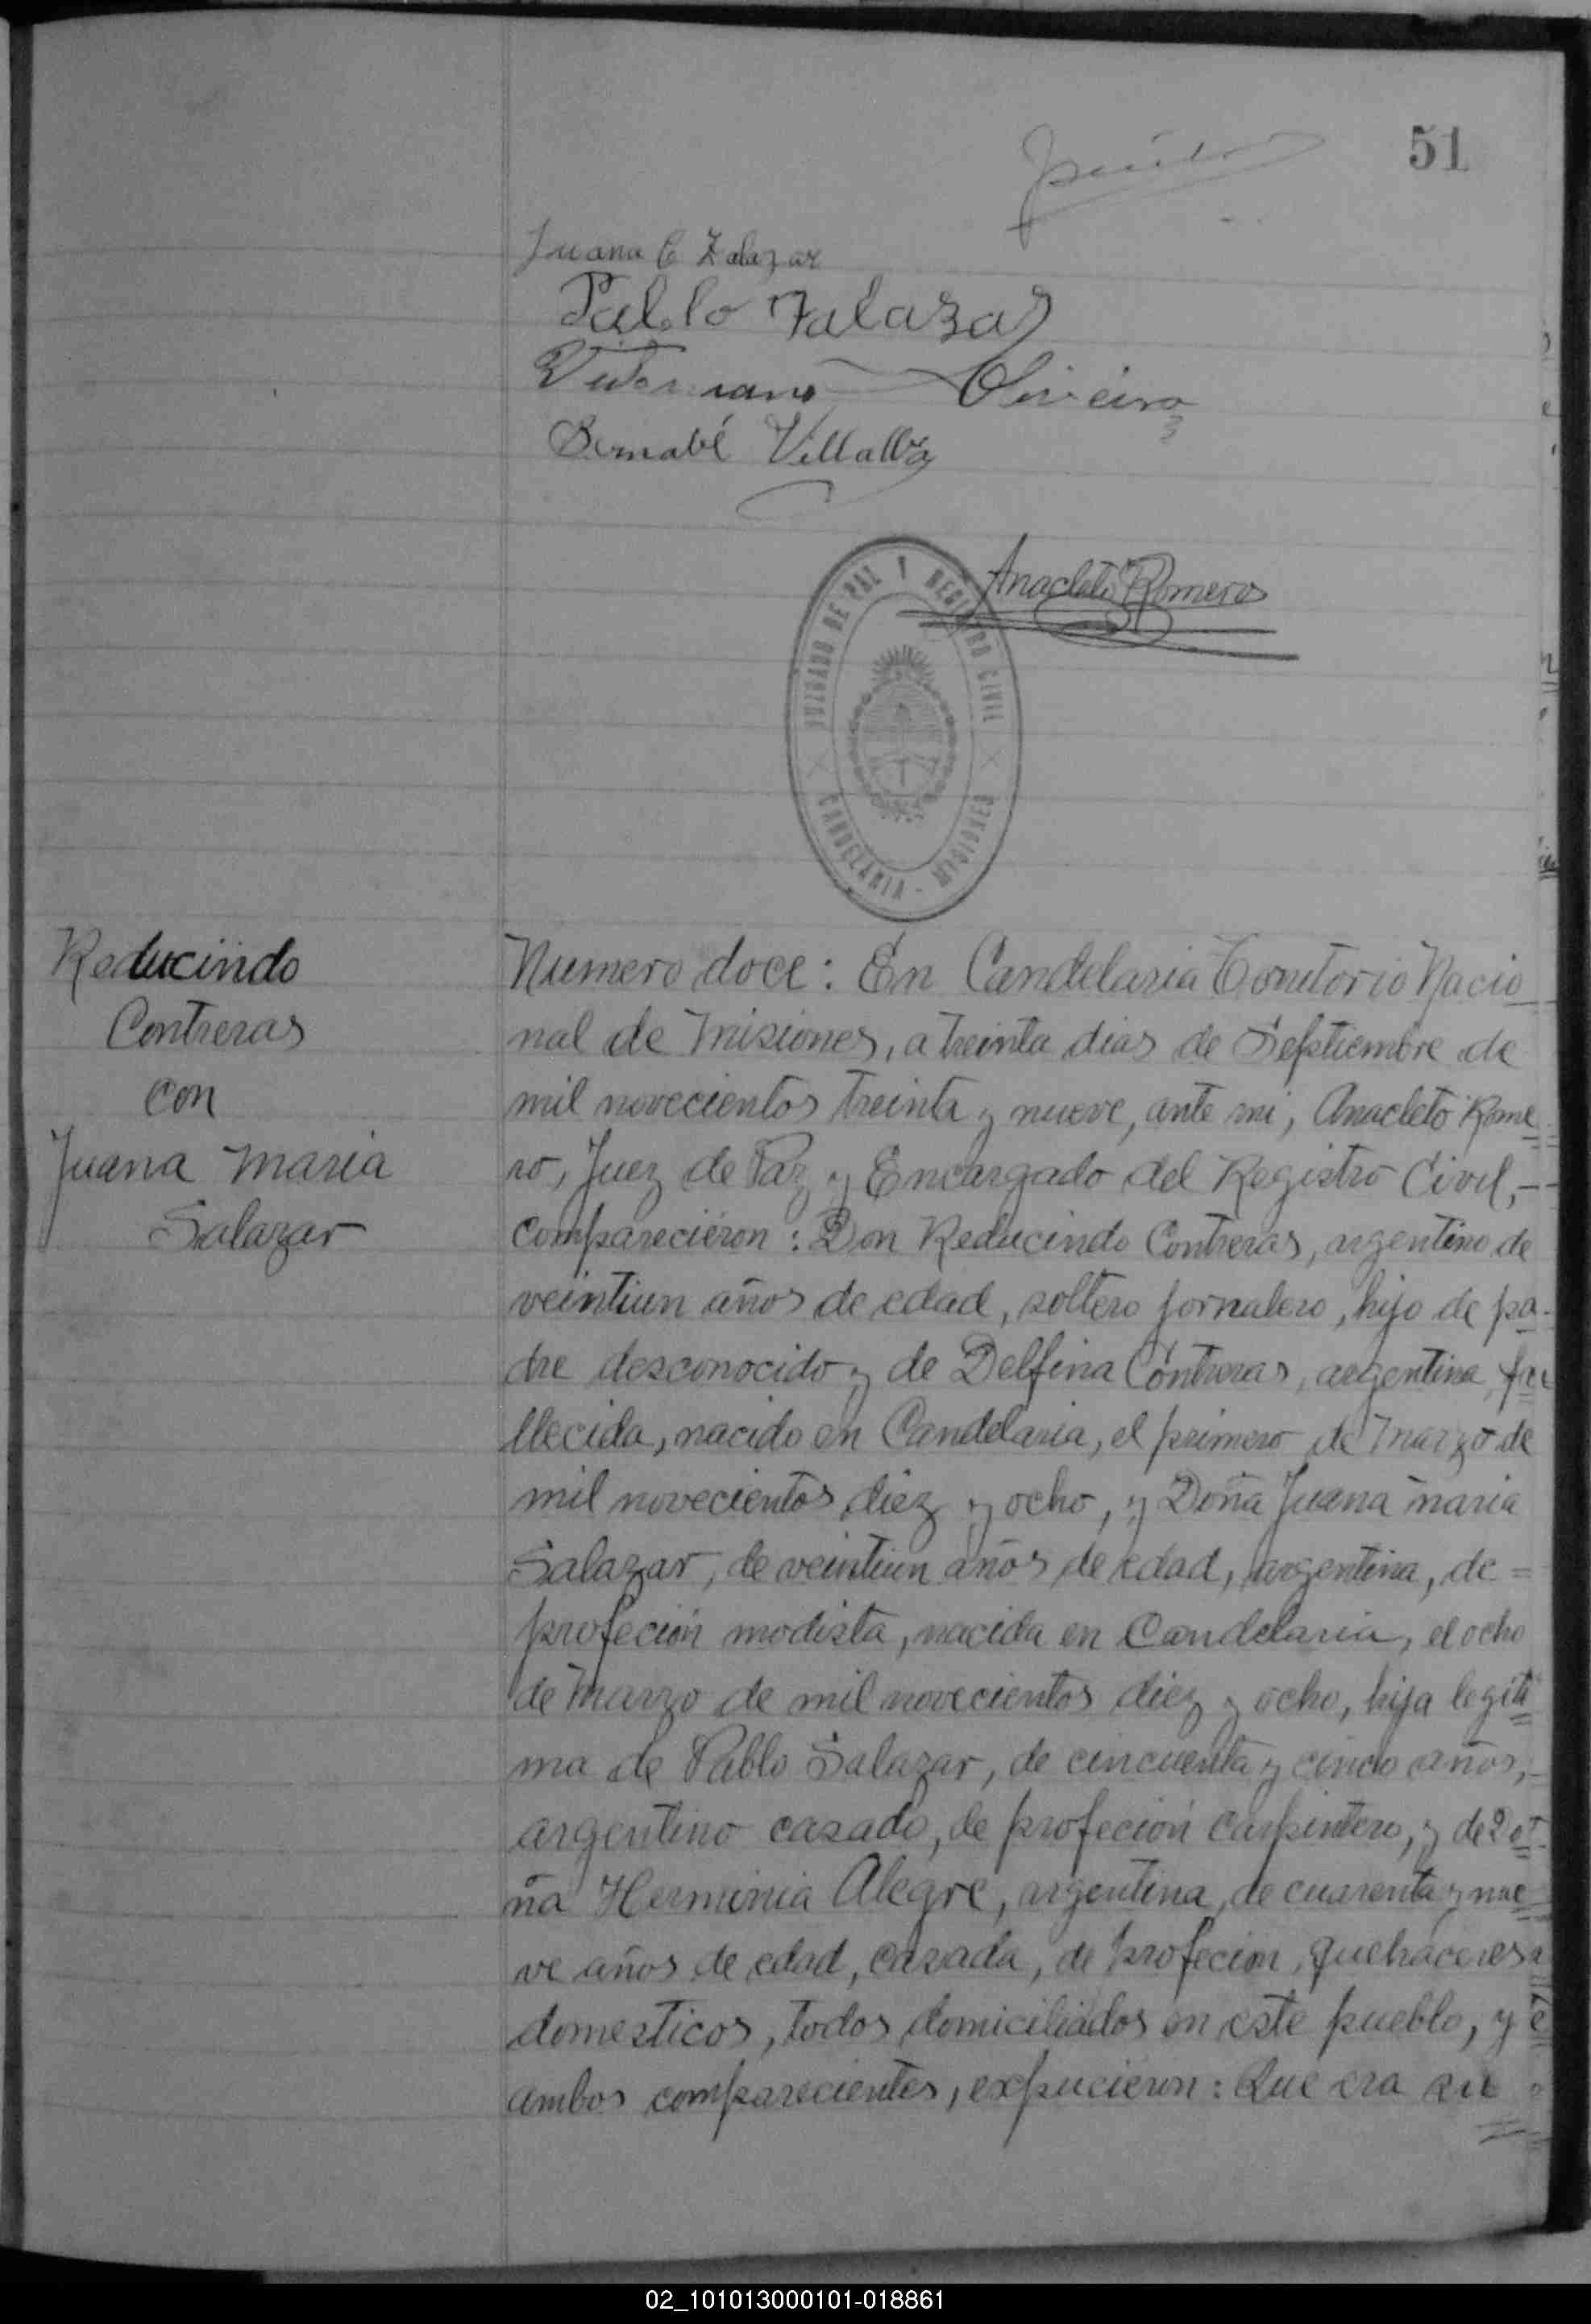 51
Juana C Zalazar
Pablo Zalazar
Oliveira
Bernabé Villalba
Anacleto Romero
JUZGADO DE PAZ Y REGISTRO CIVIL
CANDELARIA - MISIONES
Reducindo
Contreras
con
Juana Maria
Salazar
Numero doce: En Candelaria Territorio Nacio
nal de Misiones, a treinta dias de Septiembre de
mil novecientos treinta y nueve, ante mi, Anacleto Rome
ro, Juez de Paz y Encargado del Registro Civil,-
comparecieron: Don Reducindo Contreras, argentino de
veintiun años de edad, soltero jornalero, hijo de pa-
dre desconocido y de Delfina Contreras, argentina, fa
llecida, nacido en Candelaria, el primero de Marzo de
mil novecientos diez y ocho, y Doña Juana maria
Salazar, de veintiun años de edad, argentina, de =
profeción modista, nacida en Candelaria, el ocho
de Marzo de mil novecientos diez y ocho, hija legiti
ma de Pablo Salazar, de cincuenta y cinco años,-
argentino casado, de profeción carpintero, y de Do-
ña Herminia Alegre, argentina, de cuarenta y nue
ve años de edad, casada, de profecion, quehaceres
domesticos, todos domiciliados en este pueblo, y
ambos comparecientes, expucieron: Que era su
02_101013000101-018861